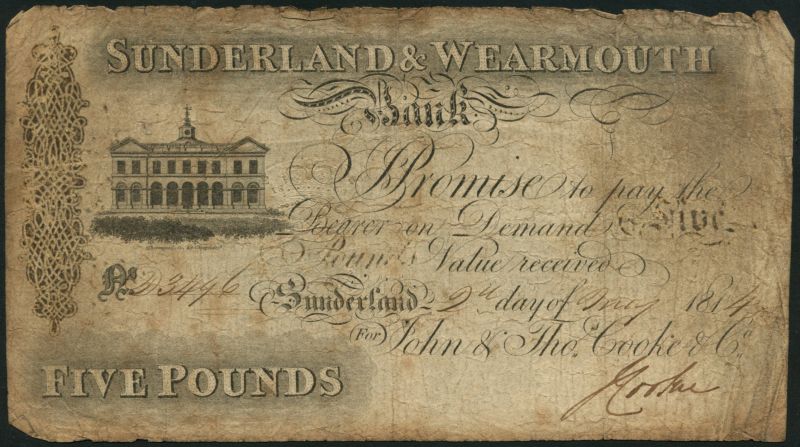 SUNDERLAND & WEARMOUTH
Bank
I Promise to pay the
Bearer on Demand Five
Pounds Value received
No. D3496 Sunderland 2d day of May 1814
(For) John & Thos. Cooke & Co.
FIVE POUNDS
J Cooke